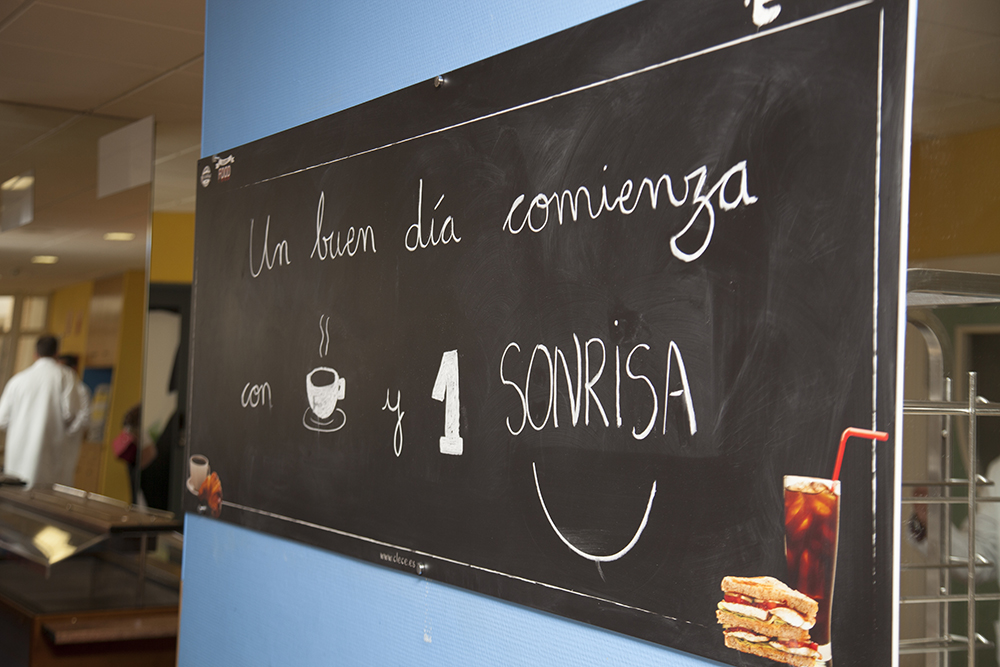 FOOD
Un buen día comienza
con y 1 SONRiSA
www.clece.es